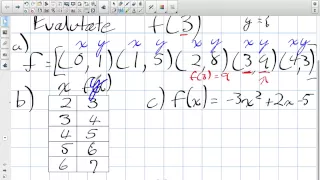 Evalutate f(3) y=6
a) x y x y x y x y x y
f = [(0, 1)(1, 5)(2, 8)(3, 9)(4, 3)]
f(3) = 9 x y
b) x f(x) y c) f(x) = -3x² + 2x - 5
2 3
3 4
4 5
5 6
6 7